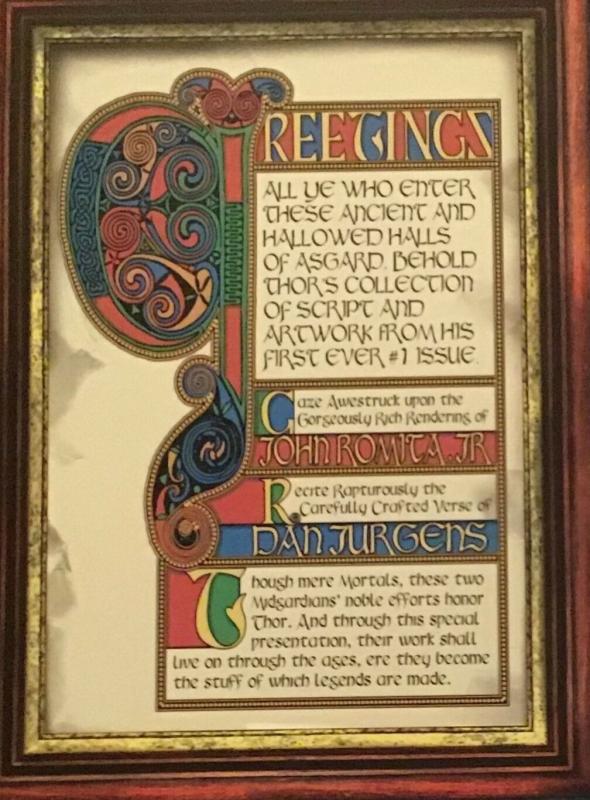 GREETINGS
ALL YE WHO ENTER
THESE ANCIENT AND
HALLOWED HALLS
OF ASGARD. BEHOLD
THOR'S COLLECTION
OF SCRIPT AND
ARTWORK FROM HIS
FIRST EVER #1 ISSUE.
Gaze Awestruck upon the
Gorgeously Rich Rendering of
JOHN ROMITA, JR
Recite Rapturously the
Carefully Crafted Verse of
DAN JURGENS
Though mere Mortals, these two
Midgardians' noble efforts honor
Thor. And through this special
presentation, their work shall
live on through the ages, ere they become
the stuff of which legends are made.